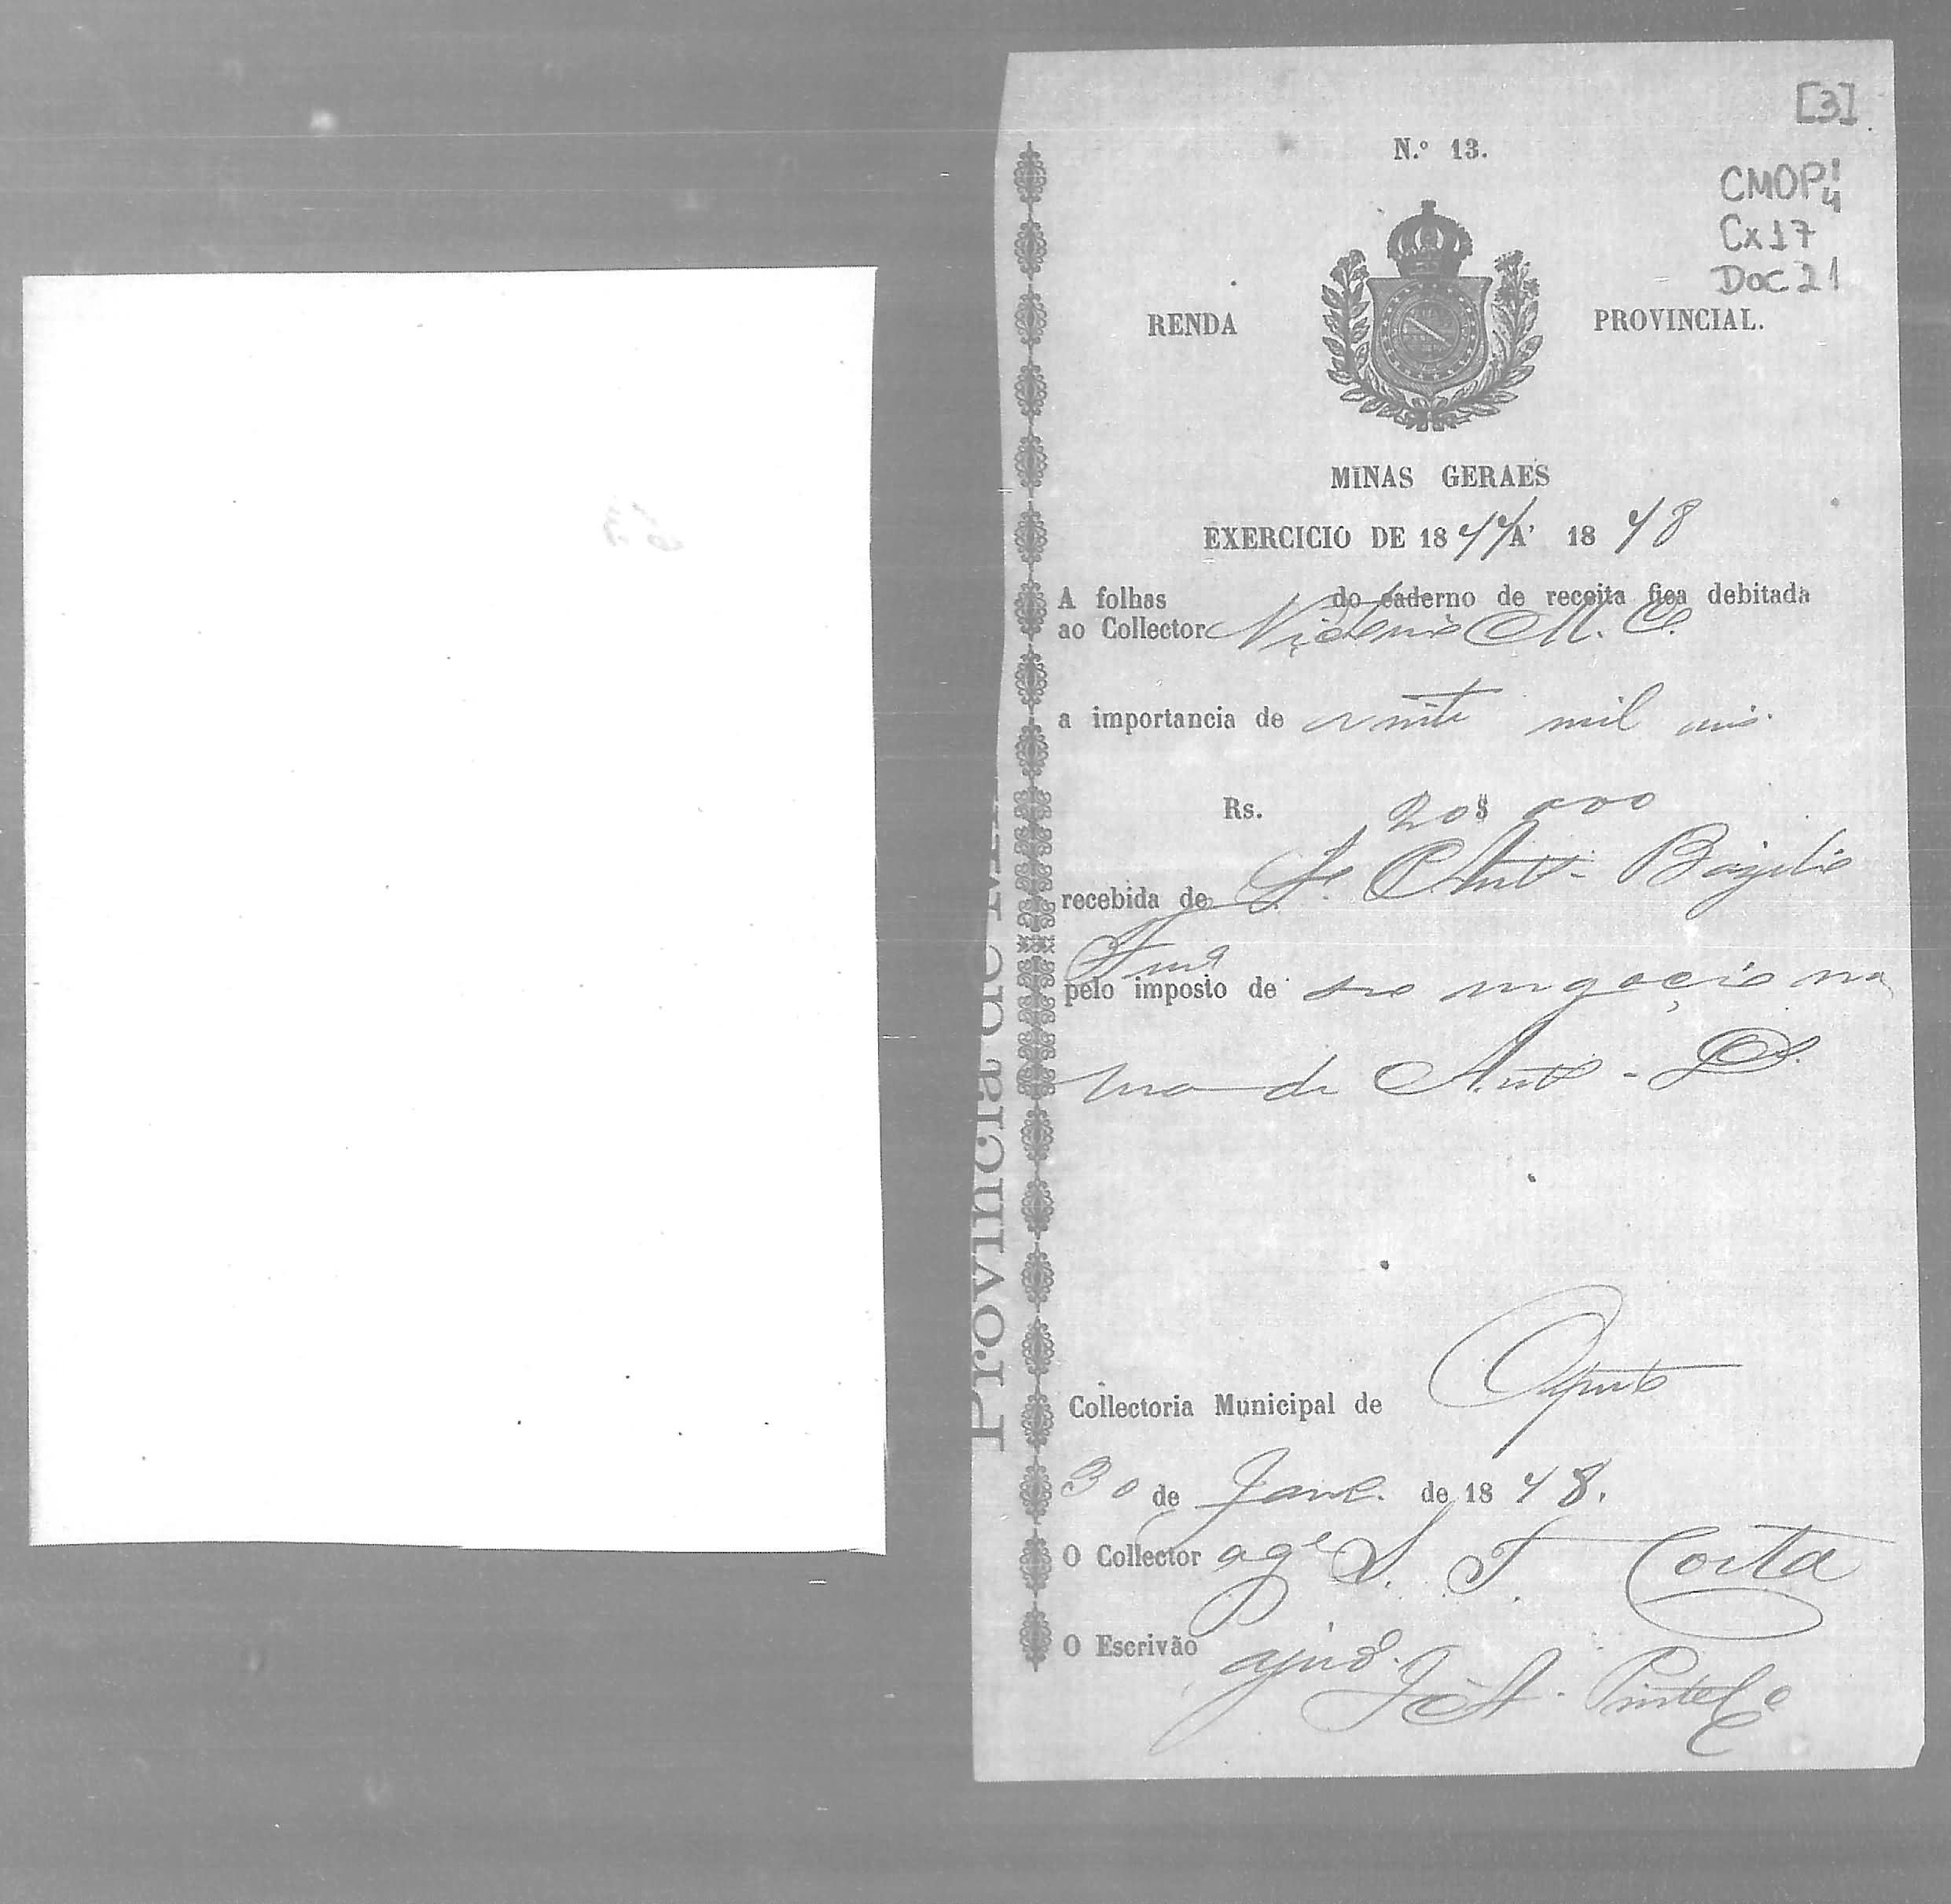 [3]
N.º 13.
CMOP
Cx 17
Doc 21
RENDA PROVINCIAL.
MINAS GERAES
EXERCICIO DE 18 A' 18 78
A folhas do caderno de receita fica debitada
ao Collector M. C.
a importancia de vinte mil reis.
Rs. 20$000
recebida de Je Anto. Bazilio
pelo imposto de seo negocio na
rua de Anto. D.
Collectoria Municipal de
30 de Jane. de 18 78.
O Collector age S. T. Costa
O Escrivão ajude. J A. Pimtel
Provincia de